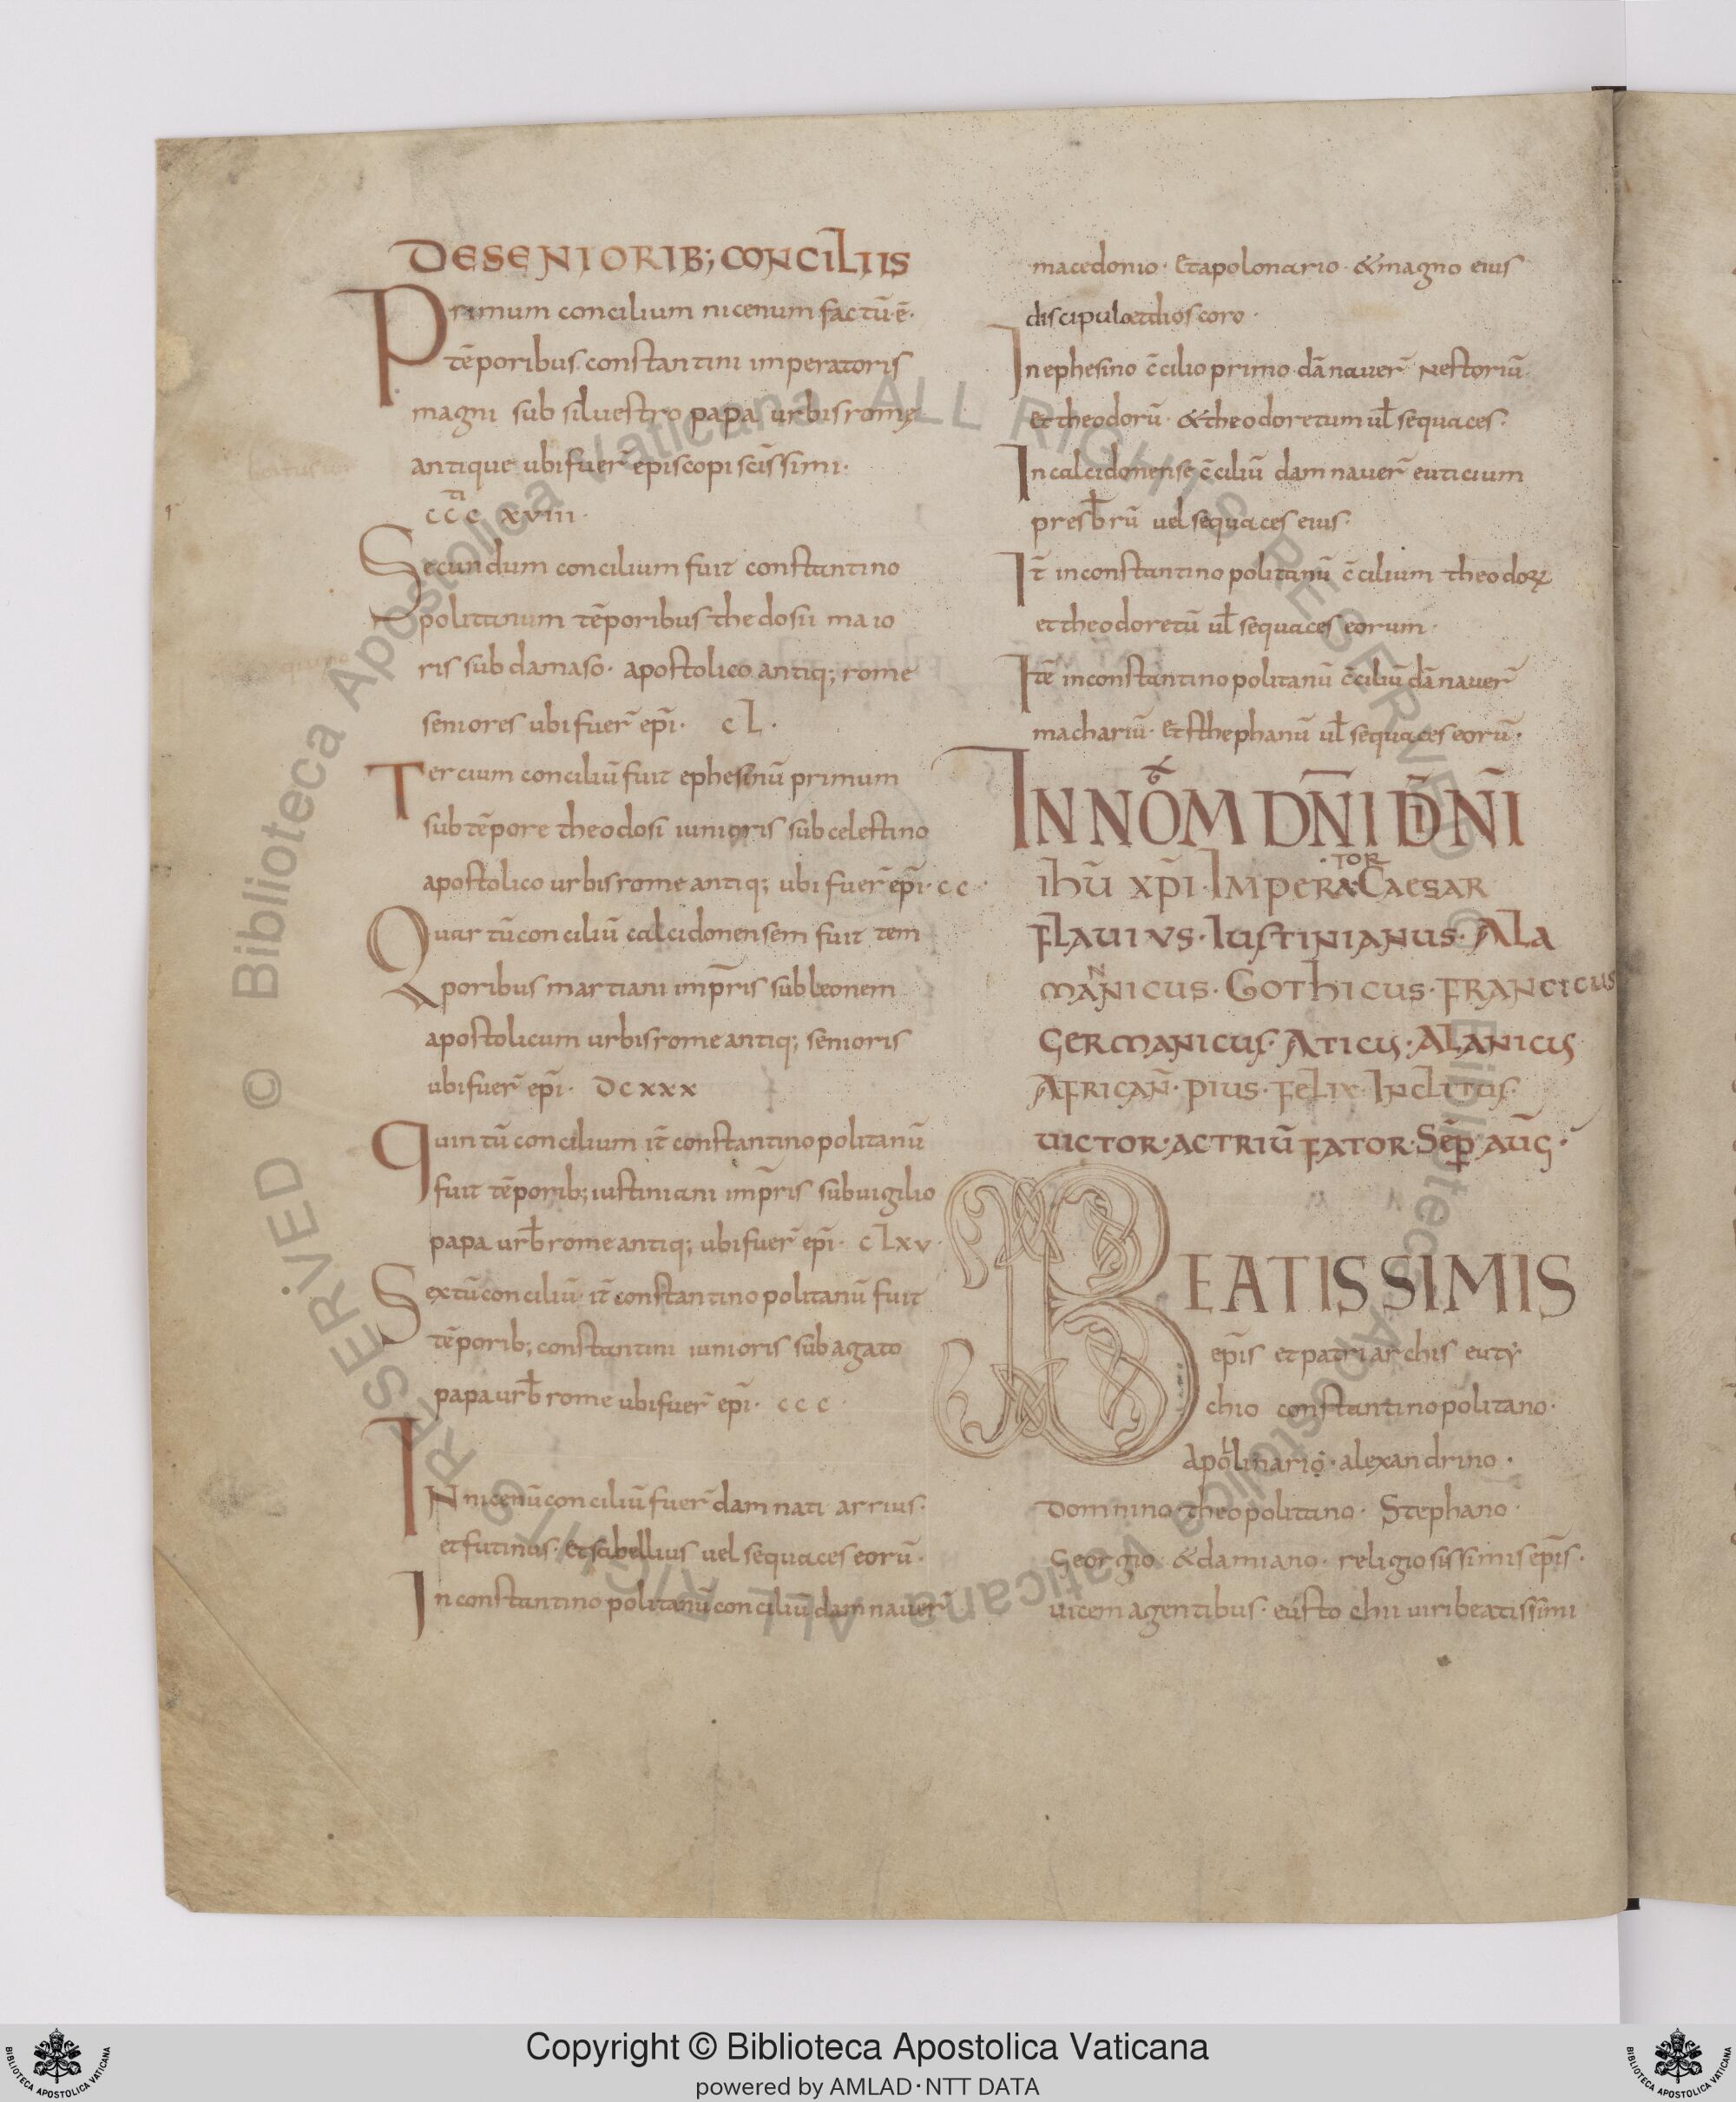 DE SENIORIB; CONCILIIS
Primum concilium nicenum factū ē·
tēporibus constantini imperatoris
magni sub siluestro papa urbis romę
antique ubi fuer̄ episcopi scīssimi·
ccc ti xviii·
Secundum concilium fuit constantino
politanum tēporibus thedosii maio
ris sub damaso· apostolico antiq; rome
seniores ubi fuer̄ ep̄i· cl·
Tercium conciliū fuit ephesinū primum
sub tēpore theodosi iunioris sub celestino
apostolico urbis rome antiq; ubi fuer̄ ep̄i· cc·
Quartū conciliū calcidonensem fuit tem
poribus martiani imp̄ris sub leonem
apostolicum urbis rome antiq; senioris
ubi fuer̄ ep̄i· dcxxx
Quintū concilium it̄ constantinopolitanū
fuit tēporib; iustiniani imp̄ris sub uigilio
papa urb̄ rome antiq; ubi fuer̄ ep̄i· clxv·
Sextū conciliū it̄ constantinopolitanū fuit
tēporib; constantini iunioris sub agato
papa urb̄ rome ubi fuer̄ ep̄i· ccc·
IN nicenū conciliū fuer̄ damnati arrius·
et futinus· et sabellius uel sequaces eorū·
In constantinopolitanū conciliū damnauer̄
macedonio· et apolonario· & magno eius
discipulo et dioscoro·
In ephesino c̄cilio primo dānauer̄ nestoriū
et theodorū· & theodoretum ul̄ sequaces·
In calcidonense c̄ciliū damnauer̄ euticium
presb̄rū uel sequaces eius·
It̄ in constantinopolitanū c̄cilium theodorę
et theodoretū ul̄ sequaces eorum·
Itē in constantinopolitanū c̄ciliū dānauer̄
machariū· et sthephanū ul̄ sequaces eorū·
IN NOM DN̄I D̄I N̄I
ihū xp̄i· Imperator Caesar
flauius· Iustinianus· Ala
mannicus· Gothicus· francicus
Germanicus· Aticus· Alanicus
African̄· pius· felix· Inclitus·
uictor· ac triūfator· Sēp aūg·
BEATISSIMIS
ep̄is et patriarchis euty
chio constantinopolitano·
Apollinario· alexandrino·
Domnino theopolitano· Stephano·
Georgio· & damiano· religiosissimis ep̄is·
uicem agentibus· eustochii uiri beatissimi
© Biblioteca Apostolica Vaticana ALL RIGHTS RESERVED
© Biblioteca Apostolica Vaticana ALL RIGHTS RESERVED
Copyright © Biblioteca Apostolica Vaticana
powered by AMLAD·NTT DATA
BIBLIOTECA APOSTOLICA VATICANA
BIBLIOTECA APOSTOLICA VATICANA